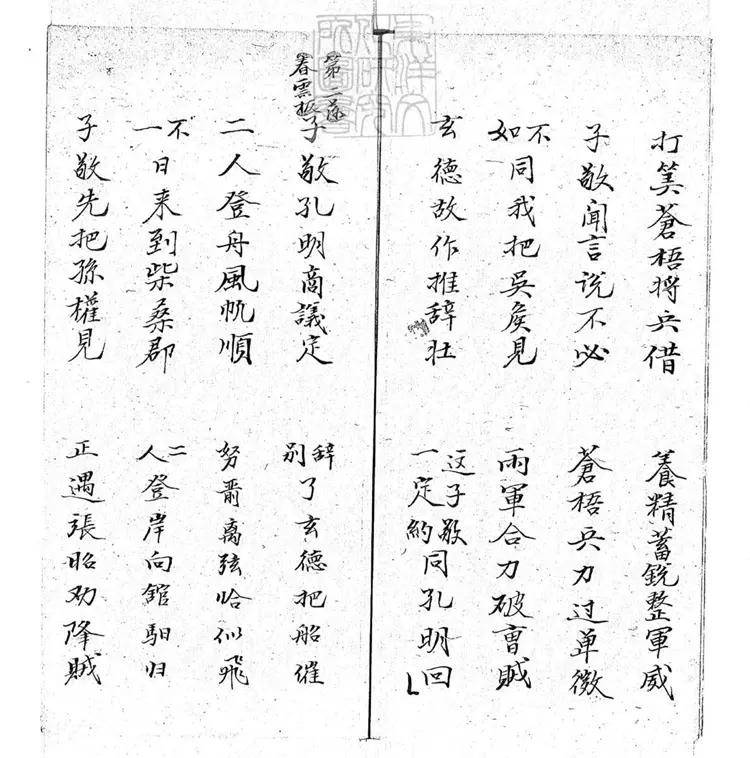 打筭蒼梧将兵借 養精蓄銳整軍威
子敬闻言说不必 蒼梧兵力过单微
不如同我把吳矦見 兩軍合力破曺賊
玄德故作推辞壮 这子敬一定約同孔明回
第二落
春雲板
子敬孔明商議定 辞别了玄德把船催
二人登舟風帆順 努箭离弦恰似飛
不一日来到柴桑郡 二人登岸向舘馹归
子敬先把孫權見 正遇張昭劝降賊